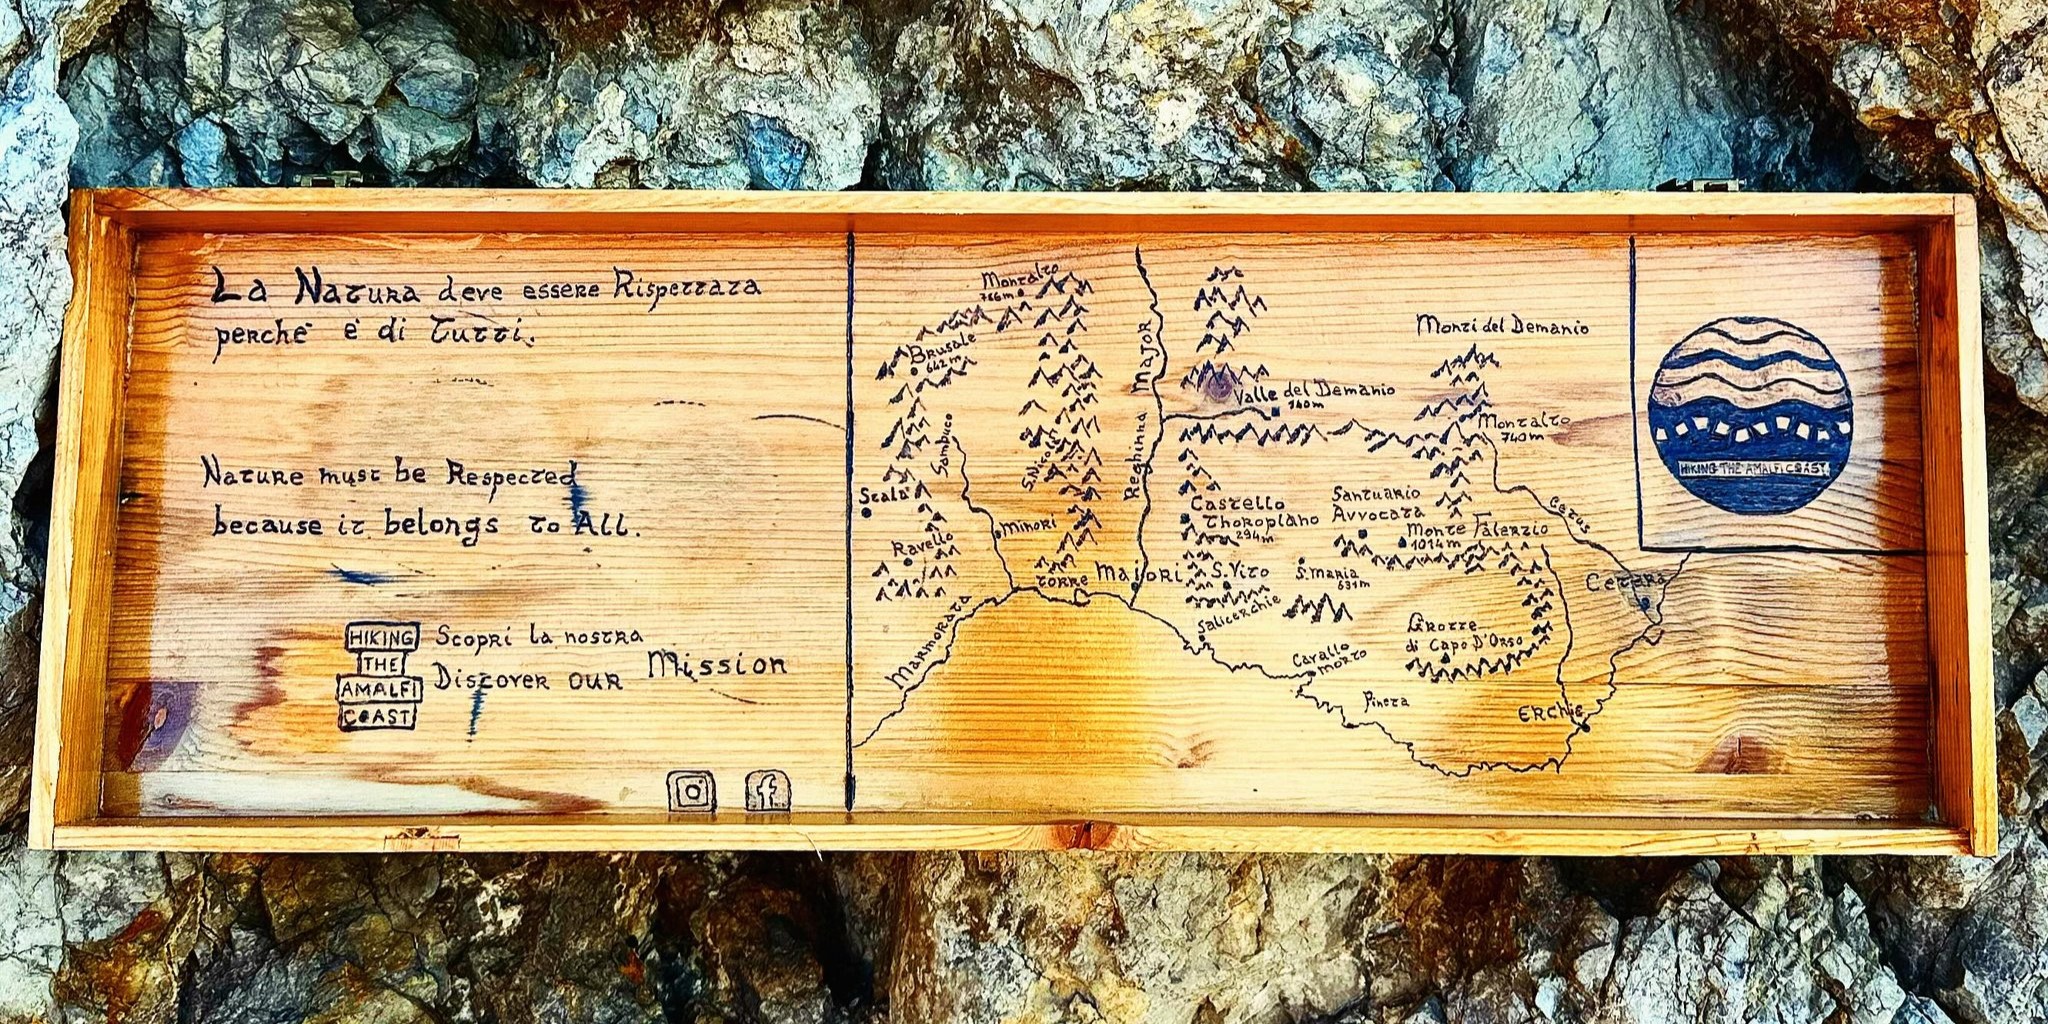 La Natura deve essere Rispettata
perché é di Tutti.
Nature must be Respected
because it belongs to All.
HIKING
THE
AMALFI
COAST
Scopri la nostra
Discover our Mission
Montalto
Brusale
642m
Sambuco
S. Nicola
Scala
Ravello
Minori
Torre
Marmorata
Reghinna Major
Maiori
Valle del Demanio
340m
Monti del Demanio
Montalto
740m
Castello
Thoroplano
294m
Santuario
Avvocata
Monte Falerzio
1014m
S. Vito
Salicerchie
S. Maria
631m
Grotte
di Capo D'Orso
Cavallo
morto
Pineta
Erchie
Cetus
Cetara
HIKING THE AMALFI COAST